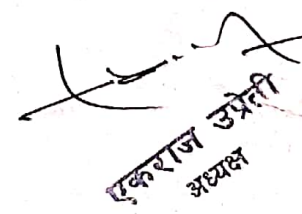 एकराज उप्रेती
अध्यक्ष